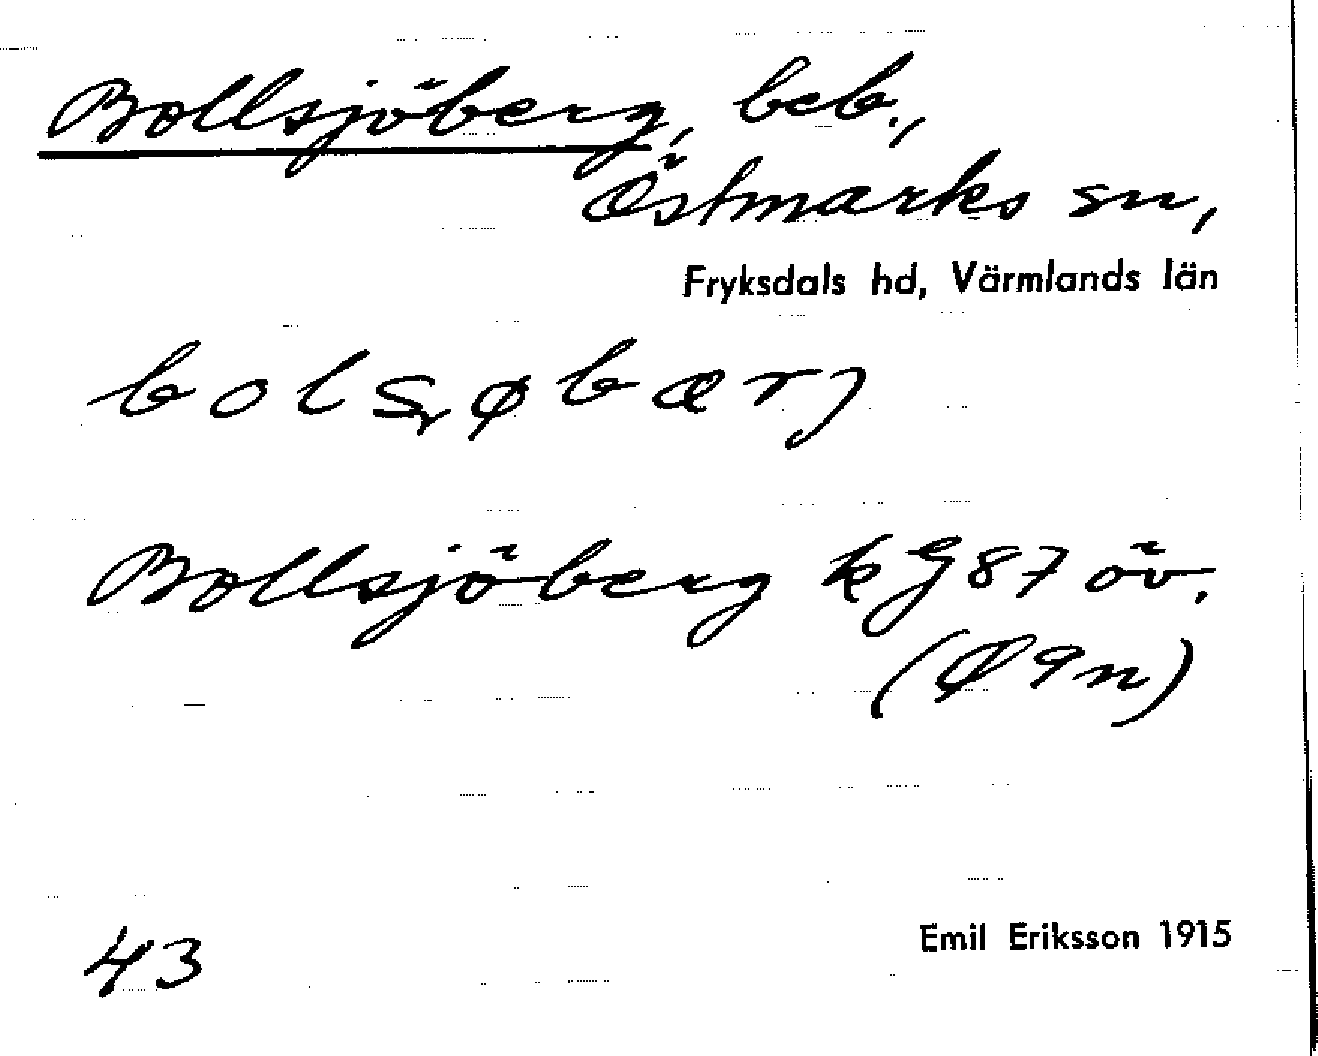 Bollsjöberg, beb.,
Östmarks sn,
Fryksdals hd, Värmlands län
bolsøbærj
Bollsjöberg k G 87 öv.
(Ø 9 n)
43
Emil Eriksson 1915